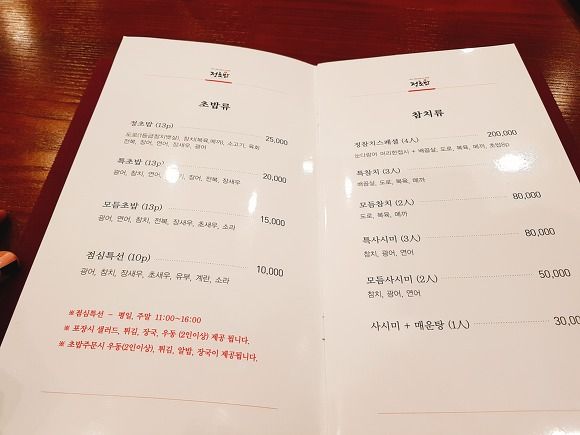 정초밥
초밥류
정초밥 (13p) 25,000
도로(1등급참치뱃살), 참치(복육,메까), 소고기, 육회
전복, 장어, 연어, 장새우, 광어
특초밥 (13p) 20,000
광어, 참치, 연어, 장어, 전복, 장새우
모듬초밥 (13p) 15,000
광어, 연어, 참치, 장새우, 초새우, 소라
점심특선 (10p) 10,000
광어, 참치, 장새우, 초새우, 유부, 계란, 소라
※점심특선 - 평일, 주말 11:00~16:00
※ 포장시 샐러드, 튀김, 장국, 우동 (2인이상) 제공 됩니다.
※ 초밥주문시 우동(2인이상), 튀김, 알밥, 장국이 제공됩니다.
정초밥
참치류
정참치스페셜 (4人) 200,000
눈다랑어 머리한접시 + 배꼽살, 도로, 복육, 메까, 초밥8p
특참치 (3人)
배꼽살, 도로, 복육, 메까
모듬참치 (2人) 80,000
도로, 복육, 메까
특사시미 (3人) 80,000
참치, 광어, 연어
모듬사시미 (2人) 50,000
참치, 광어, 연어
사시미 + 매운탕 (1人) 30,00